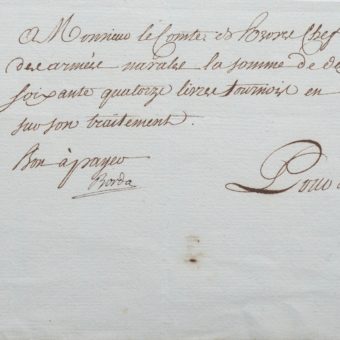 A Monsieur le Comte de Chef
des armées navales la somme de
soixante quatorze livres tournois en
sur son traitement.
Bon à payer
Borda
Pour